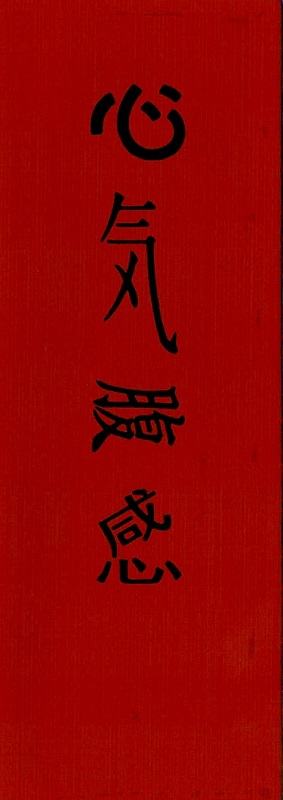 心気腹感